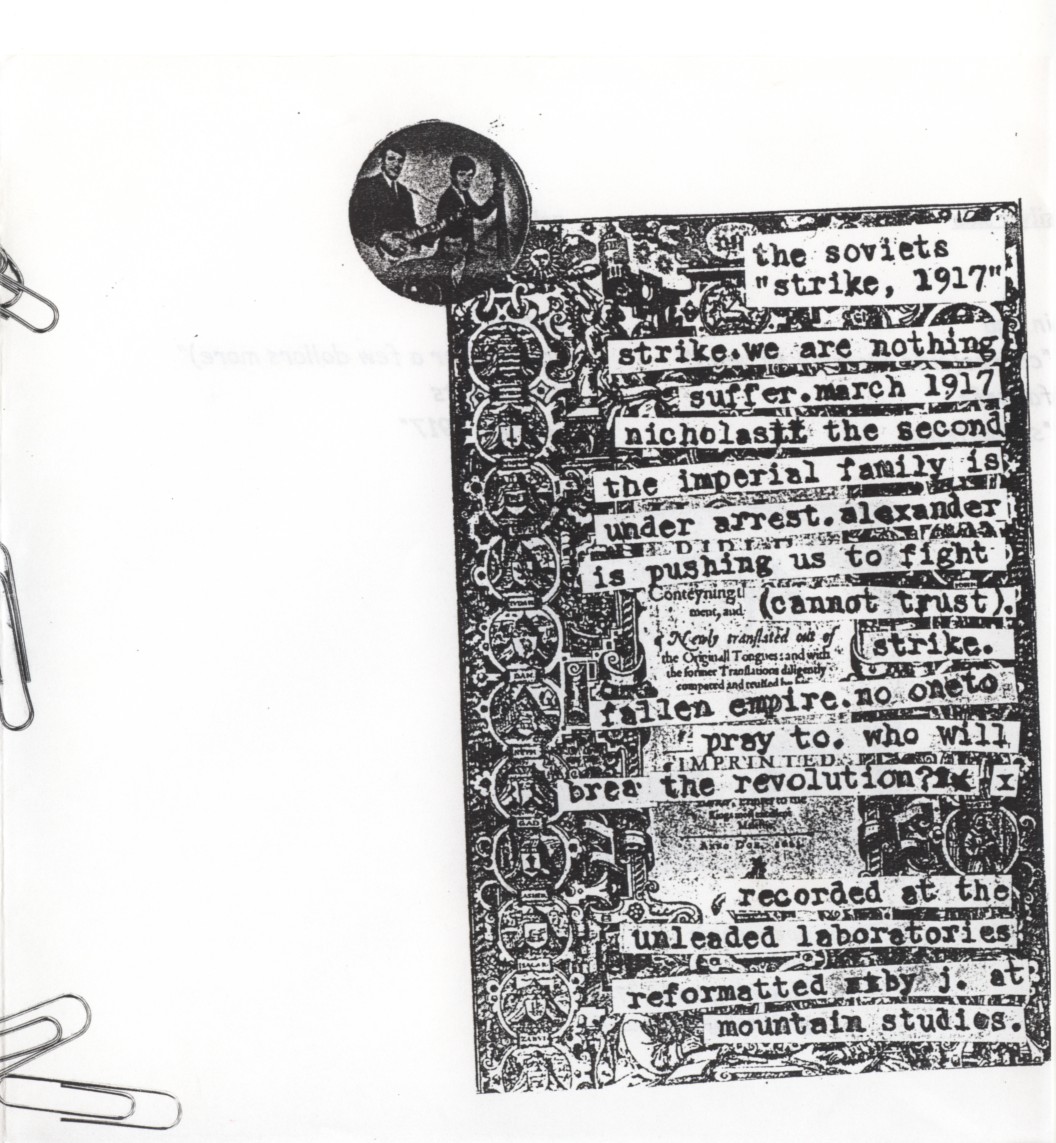 the soviets
"strike, 1917"
strike.we are nothing
suffer.march 1917
nicholasII the second
the imperial family is
under arrest.alexander
is pushing us to fight
Conteyning
ment, and
(cannot trust).
Newly translated out of
strike.
the Originall Tongues: and with
the former Translations diligently
compared and reuised
fallen empire.no oneto
pray to. who will
IMPRINTED
brea the revolution? x
Anno Dom. 1611
recorded at the
unleaded laboratories
reformatted xxby j. at
mountain studios.
DAN
GAD
ASHER
r a few dollars more)"
917"